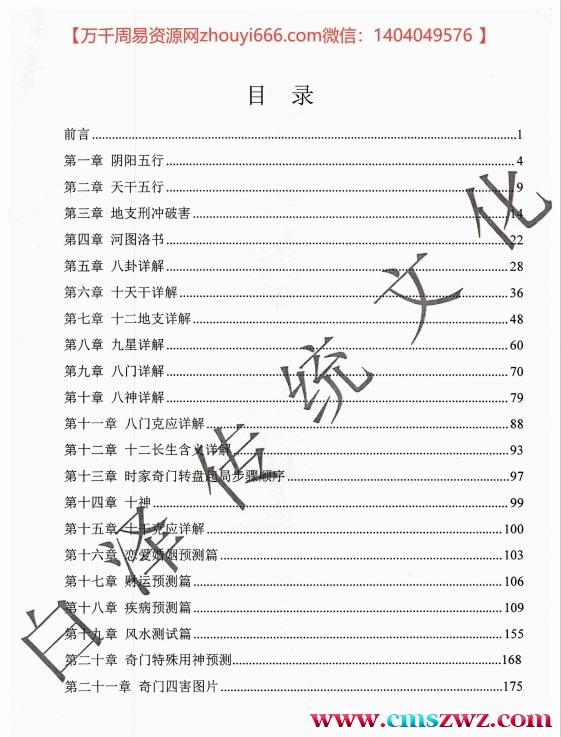 【万千周易资源网zhouyi666.com微信：1404049576 】
目 录
前言........................1
第一章 阴阳五行........................4
第二章 天干五行........................9
第三章 地支刑冲破害........................14
第四章 河图洛书........................22
第五章 八卦详解........................28
第六章 十天干详解........................36
第七章 十二地支详解........................48
第八章 九星详解........................60
第九章 八门详解........................70
第十章 八神详解........................79
第十一章 八门克应详解........................88
第十二章 十二长生含义详解........................93
第十三章 时家奇门转盘起局步骤顺序........................97
第十四章 十神........................99
第十五章 十干克应详解........................100
第十六章 恋爱婚姻预测篇........................103
第十七章 财运预测篇........................106
第十八章 疾病预测篇........................109
第十九章 风水测试篇........................155
第二十章 奇门特殊用神预测........................168
第二十一章 奇门四害图片........................175
白泽传统文化
www.cmszwz.com